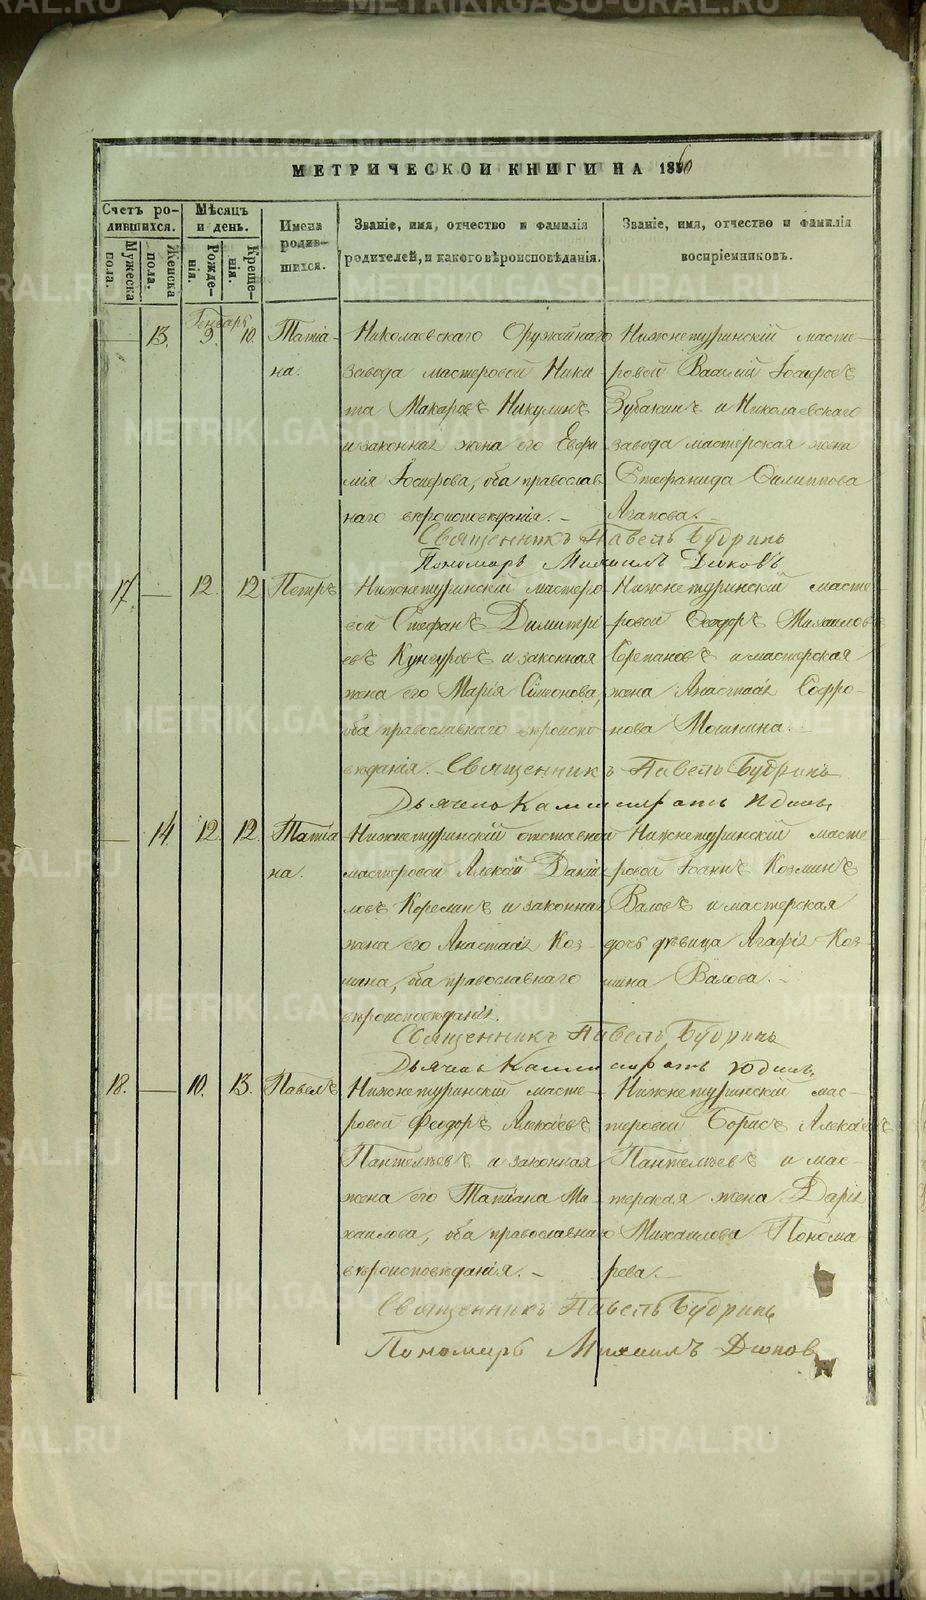 МЕТРИЧЕСКОЙ КНИГИ НА 1860
Счетъ ро-
дившихся.
Мужеска
пола.
Женска
пола.
Мѣсяцъ
и день.
Рожде-
нія.
Креще-
нія.
Имена
родив-
шихся.
Званіе, имя, отчество и фамилія
родителей, и какого вѣроисповѣданія.
Званіе, имя, отчество и фамилія
воспріемниковъ.
Генварь
— 13. 9. 10. Татіа-
на.
Николаевскаго Оружейнаго
завода мастеровой Ники-
та Макаровъ Никулинъ
и законная жена его Евфи
мія Іосифова, оба православ
наго вѣроисповѣданія. –
Нижнетуринскій масте-
ровой Василій Іосифовъ
Зубакинъ и Николаевскаго
завода мастерская жена
Стефанида Филиппова
Агапова. –
Священникъ Павелъ Будринъ
Пономарь Михаилъ
17. — 12. 12 Петръ
Нижнетуринскій мастеро
вой Стефанъ Димитрі
евъ Кунгуровъ и законная
жена его Марія Симонова,
оба православнаго вѣроиспо
вѣданія. –
Нижнетуринскій масте-
ровой Феодоръ Михаиловъ
и мастерская
жена Анастасія Софро-
нова Мошкина. –
Священникъ Павелъ Будринъ
Дьячекъ Каллистратъ Юдинъ
— 14. 12. 12 Татіа
на.
Нижнетуринскій отставной
мастеровой Алексій Даніи
ловъ Корелинъ и законная
жена его Анастасія Коз-
мина, оба православнаго
вѣроисповѣданія.
Нижнетуринскій масте
ровой Іоаннъ Козминъ
Валовъ и мастерская
дочь дѣвица Агафія Коз-
мина Валова. –
Священникъ Павелъ Будринъ
Дьячекъ Каллистратъ Юдинъ
18. — 10. 13. Павелъ
Нижнетуринскій масте-
ровой Феодоръ Алексіевъ
Пантелѣевъ и законная
жена его Татіана Ми
хаилова, оба православнаго
вѣроисповѣданія. –
Нижнетуринскій мас-
теровой Борисъ Алексѣевъ
Пантелѣевъ и мас-
терская жена Дарія
Михаилова Понома
рева. –
Священникъ Павелъ Будринъ
Пономарь Михаилъ
METRIKI.GASO-URAL.RU